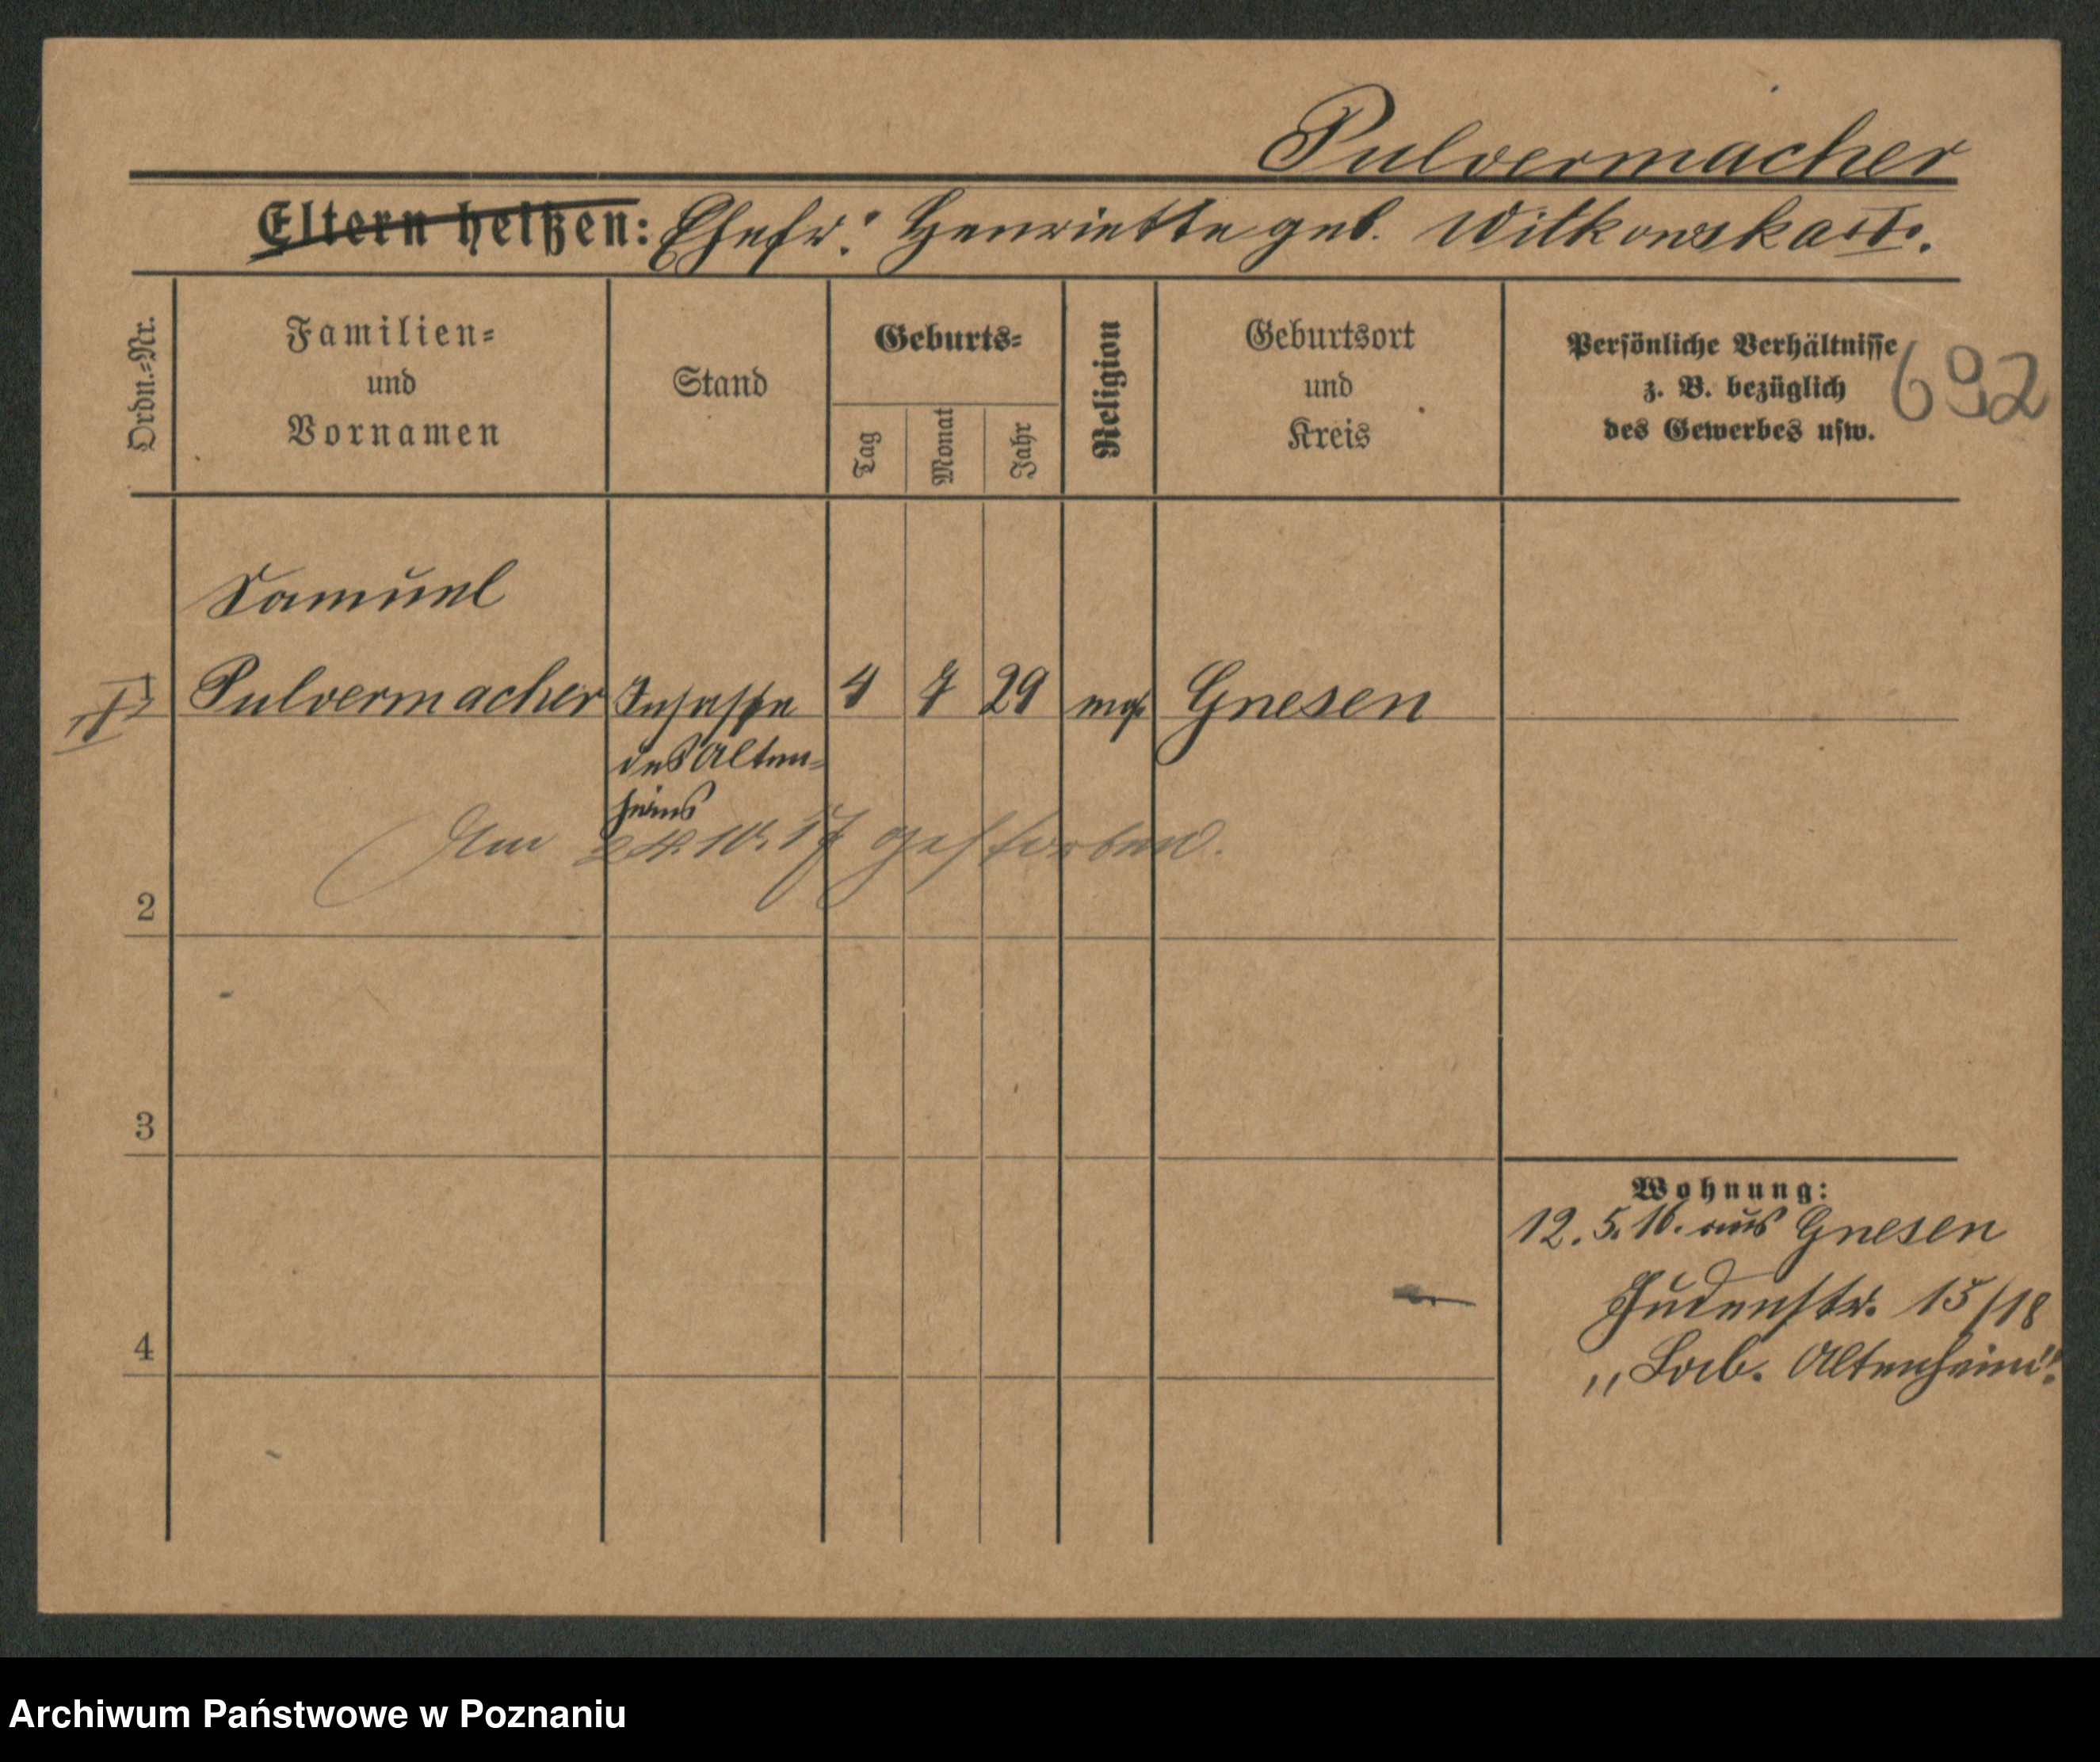 Pulvermacher
Eltern heißen: Ehefr: Henriette geb. Witkowska
Ordn.-Nr.
Familien-
und
Vornamen
Stand
Geburts-
Tag
Monat
Jahr
Religion
Geburtsort
und
Kreis
Persönliche Verhältnisse
z. B. bezüglich
des Gewerbes usw.
692
Samuel
Pulvermacher Insasse 4 7 29 mos Gnesen
des Alten-
heims
Am 24.10.17 gestorben.
2
3
4
Wohnung:
12. 5. 16. aus Gnesen
Judenstr. 15/18
Altenheim".
Archiwum Państwowe w Poznaniu